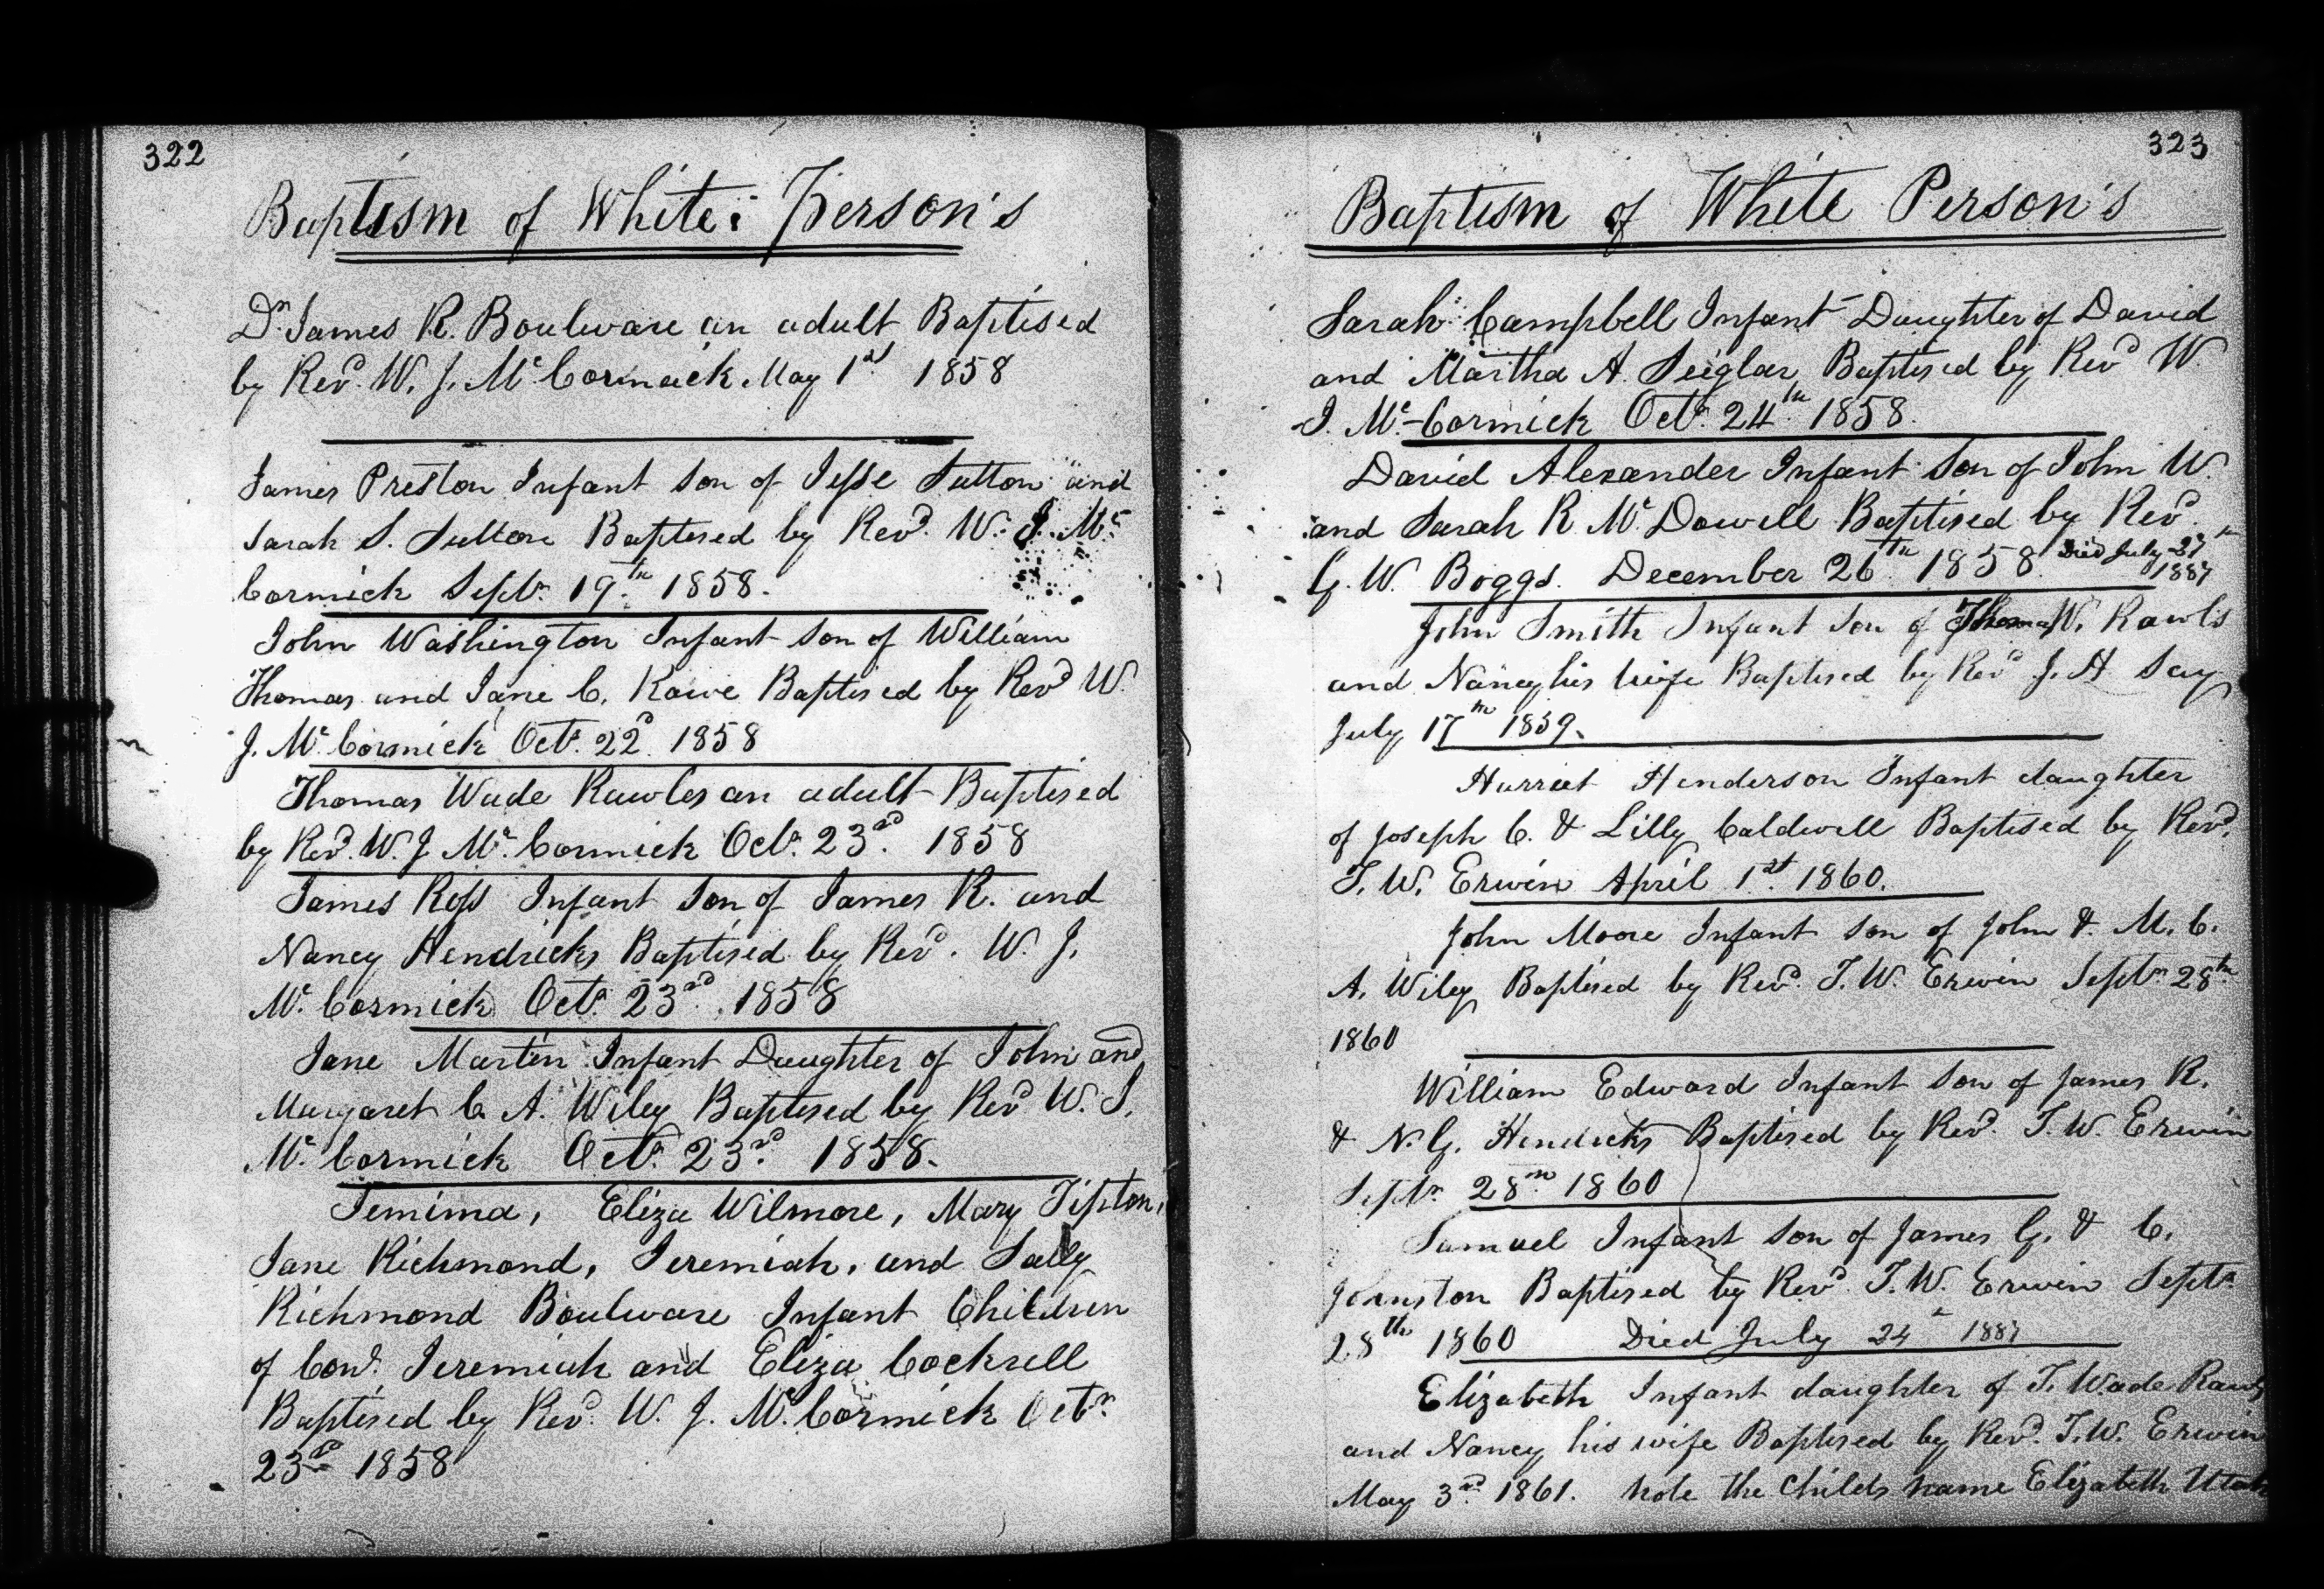 322
Baptism of White Person's
Dr. James R. Boulware an adult Baptised
by Revd. W. J. Mc Cormick May 1st 1858
James Preston Infant Son of Jesse Sutton and
Sarah S. Sutton Baptised by Revd. W. J. Mc
Cormick Septr. 19th 1858.
John Washington Infant Son of William
Thomas and Jane C. Rowe Baptised by Revd W.
J. Mc Cormick Octr. 22d. 1858
Thomas Wade Rawles an adult Baptised
by Revd. W. J. Mc. Cormick Octr. 23rd. 1858
James Ross Infant Son of James R. and
Nancy Hendricks Baptised by Revd. W. J.
Mc. Cormick Octr. 23rd. 1858
Jane Martin Infant Daughter of John and
Margaret C. A. Wiley Baptised by Revd W. J.
Mc. Cormick Octr. 23rd. 1858.
Jemima, Eliza Wilmore, Mary Tipton,
Jane Richmond, Jeremiah, and Sally
Richmond Boulware Infant Children
of Jeremiah and Eliza Cockrell
Baptised by Revd. W. J. Mc. Cormick Octr
23rd 1858
323
Baptism of White Person's
Sarah Campbell Infant Daughter of David
and Martha A. Seiglar Baptised by Revd W.
J. Mc. Cormick Octr. 24th 1858.
David Alexander Infant Son of John W.
and Sarah R. Mc Dowell Baptised by Revd.
G. W. Boggs. December 26th 1858. Died July 27th
1887
John Smith Infant Son of Thomas W. Rawls
and Nancy his wife Baptised by Revd J. H Say
July 17th 1859.
Harriet Henderson Infant daughter
of Joseph C. & Lilly Caldwell Baptised by Revd.
T. W. Erwin April 1st. 1860.
John Moore Infant Son of John & M. C.
A. Wiley Baptised by Revd. T. W. Erwin Septr 28th
1860
William Edward Infant Son of James R.
& N. G. Hendricks Baptised by Revd. T. W. Erwin
Septr 28th 1860
Samuel Infant Son of James G. & C.
Johnston Baptised by Revd. T. W. Erwin Septr
28th 1860 Died July 24 1887
Elizabeth Infant daughter of T. Wade Rawls
and Nancy his wife Baptised by Revd. T. W. Erwin
May 3rd. 1861. note the Childs name Elizabeth Utah